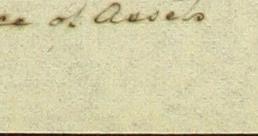 ce of Assets